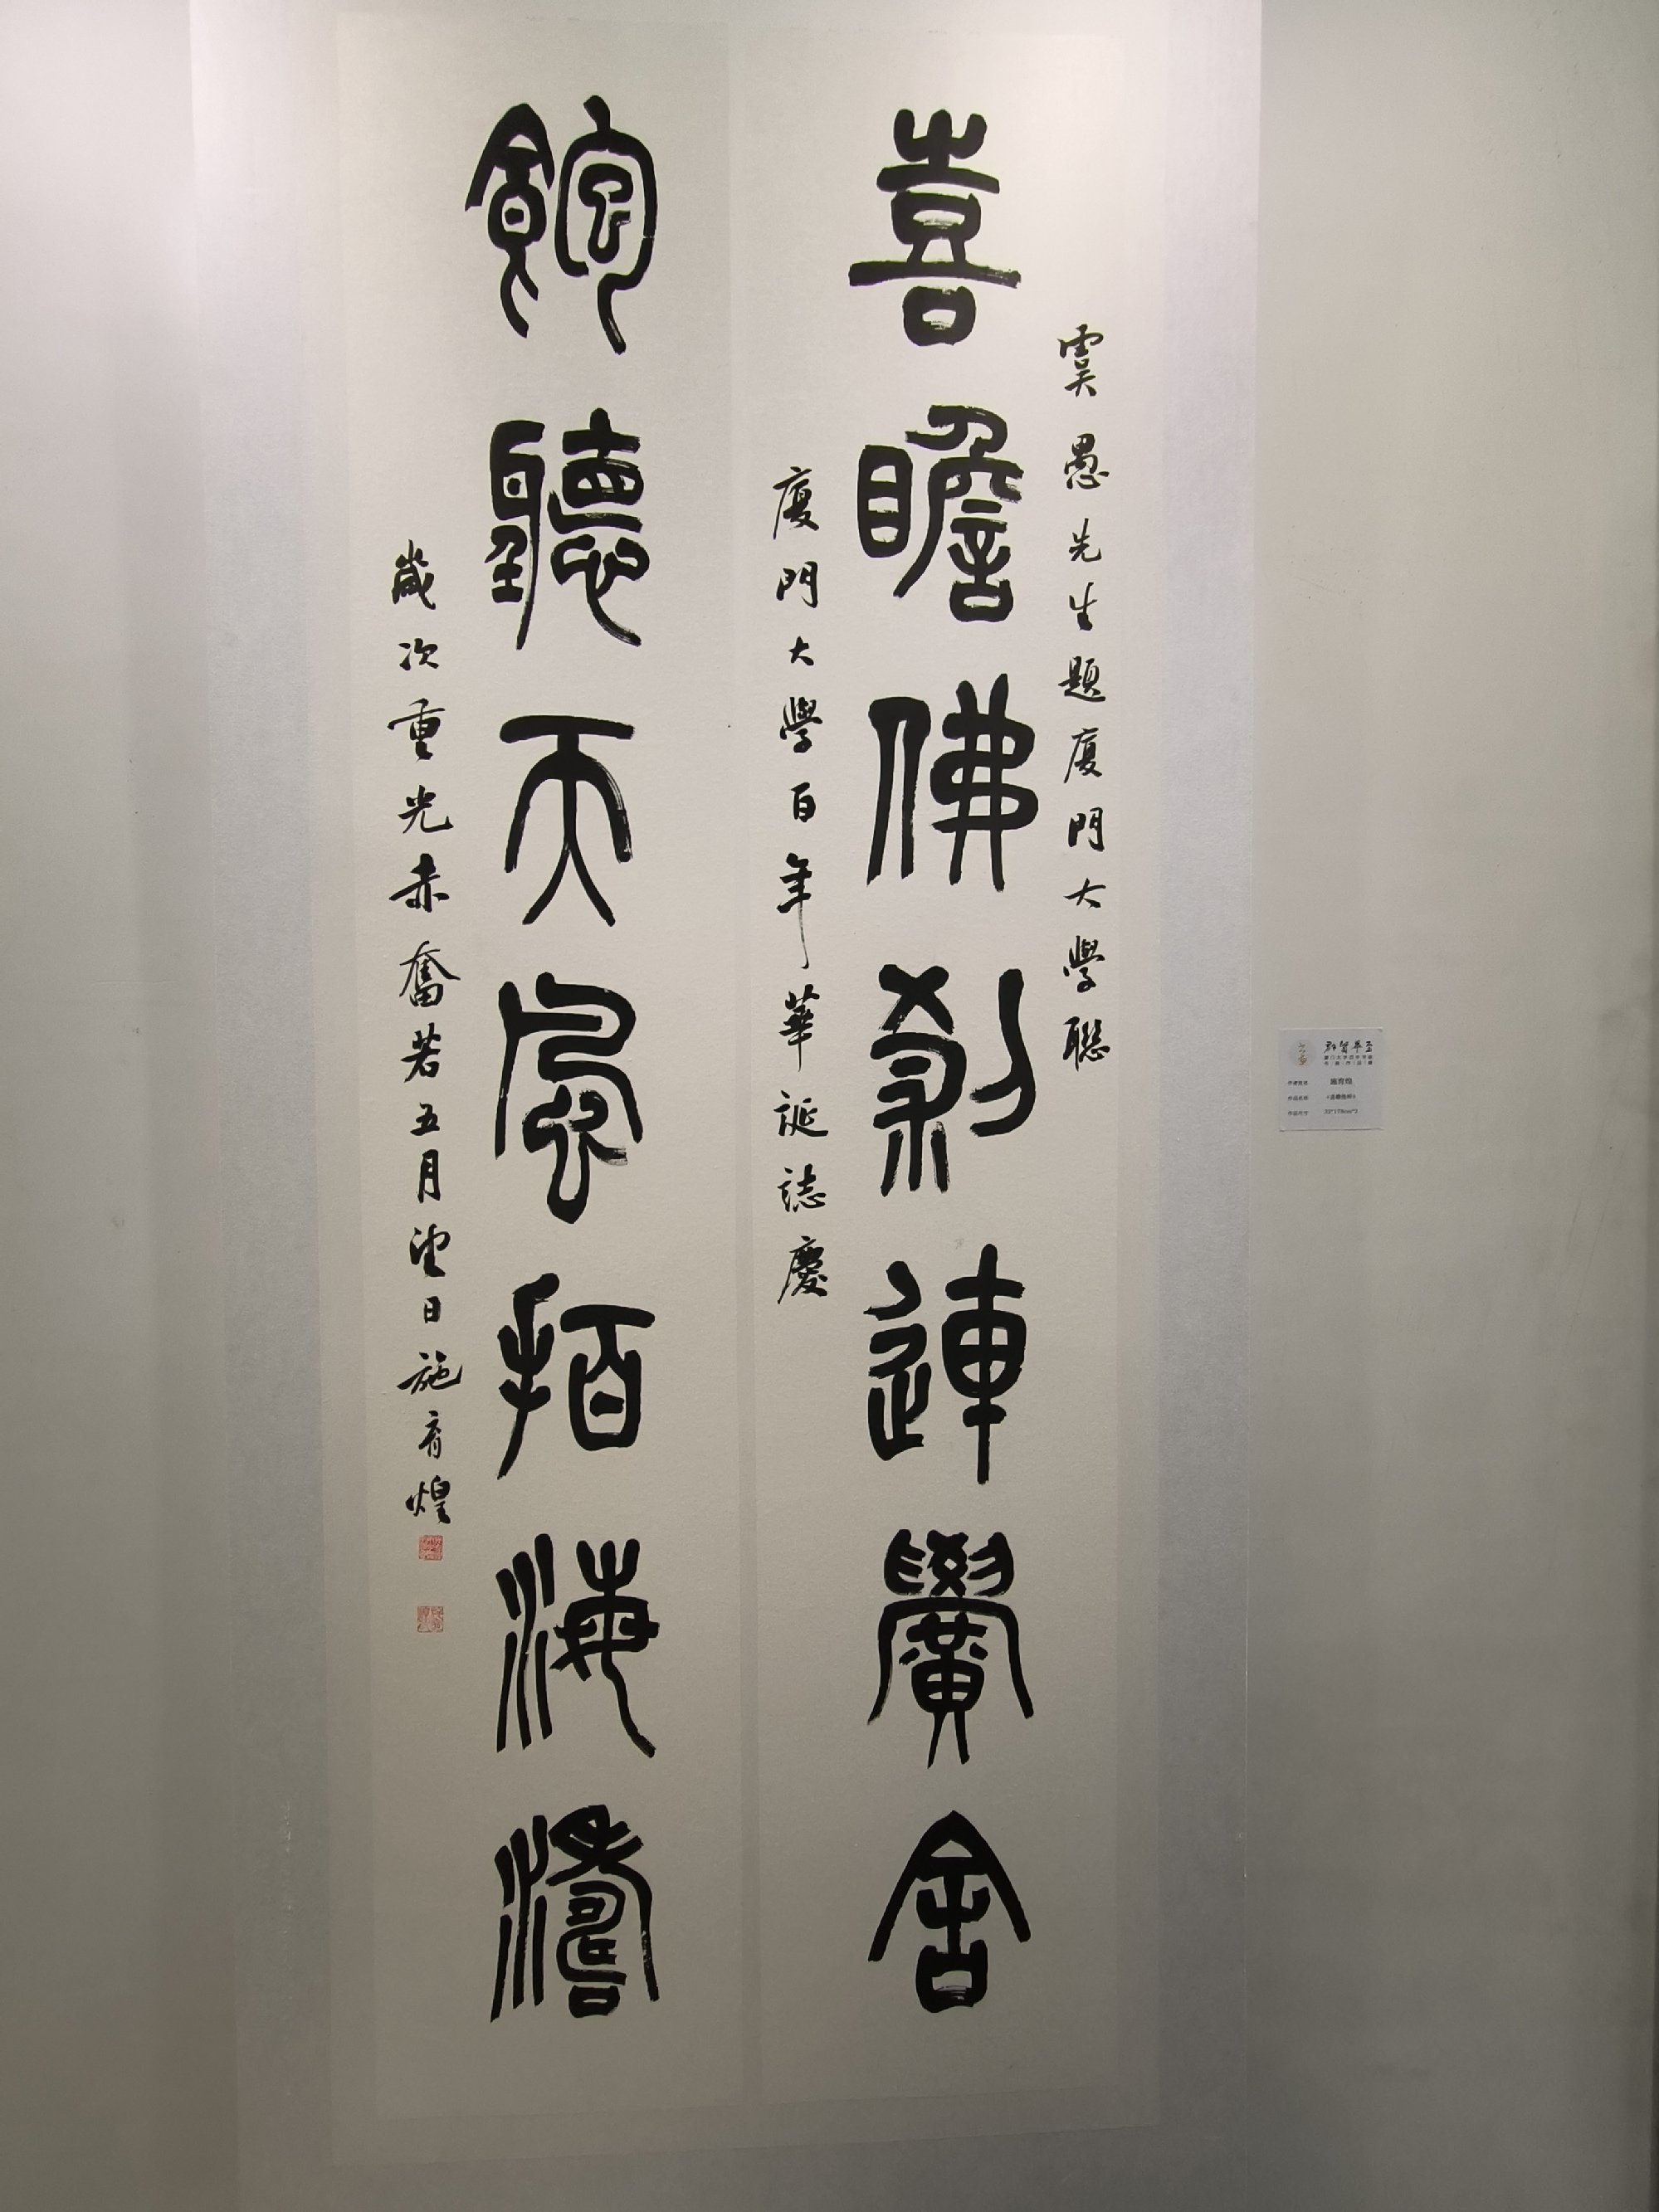 虞愚先生題廈門大學聯
喜瞻佛刹連黌舍
廈門大學百年華誕誌慶
飽聽天風拍海濤
歲次重光赤奮若五月望日施育煌
群賢畢至
施育煌